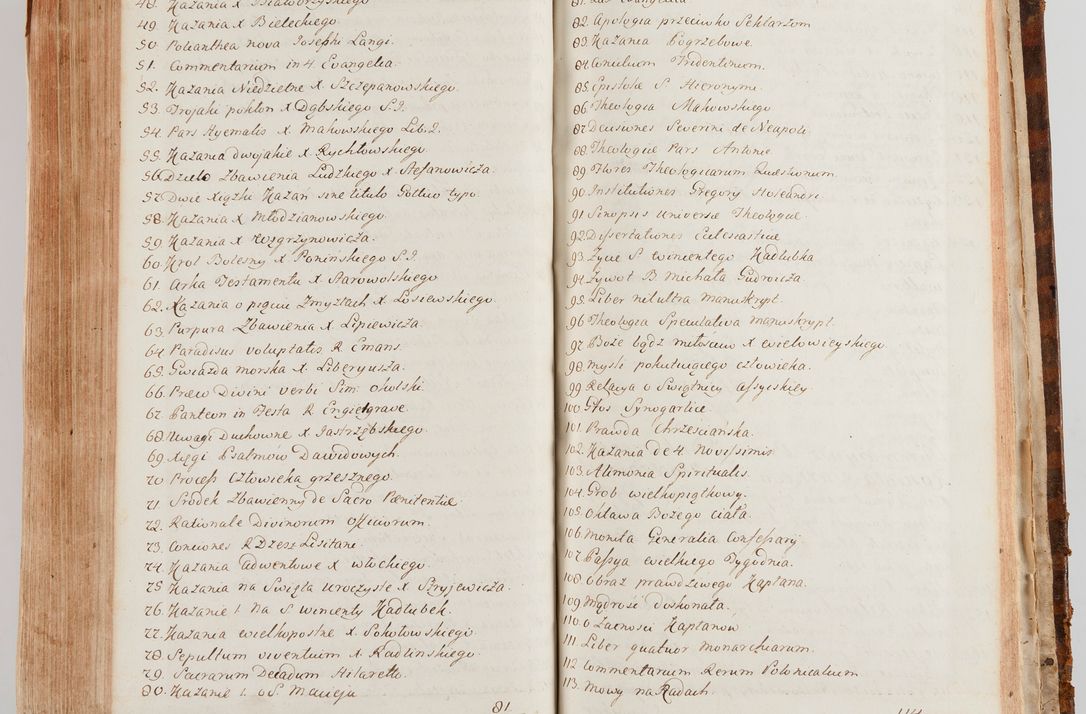 48. Kazania X. Białobrzyskiego
49. Kazania X Bieleckiego.
50. Polianthea nova Josephi Langi.
51. Commentarium in 4. Evangelia.
52. Kazania Niedzielne X. Szczepanowskiego.
53. Trojaki pokłon X Dębskiego S.J.
54. Pars Hyemalis X. Makowskiego Lib. 2.
55. Kazania dwojakie X Rychłowskiego.
56. Dzieło Zbawienia Ludzkiego X. Stefanowicza.
57. Dwie Xiążki Kazań sine titulo Gottico typo.
58. Kazania X Młodzianowskiego.
59. Kazania X Węgrzynowicza.
60. Krol Bolesny X Ponińskiego S.J.
61. Arka Testamentu X Starowolskiego
62. Kazania o pięciu Zmysłach X Łosiewskiego.
63. Purpura Zbawienia X Lipiewicza.
64. Paradisus voluptatis R. Emans.
65. Gwiazda morska X. Liberyusza.
66. Præco Divini verbi Sim: Okolski
67. Panteon in Festa R Engielgrave.
68. Uwagi Duchowne X Jastrzębskiego.
69. Xięgi Psalmów Dawidowych.
70. Process Człowieka grzesznego.
71. Srodek Zbawienny de Sacro Pænitentiæ
72. Rationale Divinorum Officiorum.
73. Conciones R Dzesz Lisitani.
74. Kazania Adwentowe X włockiego.
75 Kazania na Swięta uroczyste X Stryjewicza.
76. Kazanie 1. Na S winienty Kadłubek.
77. Kazania wielkopostne X. Sokołowskiego
78. Sepultum viventium X Radlinskiego.
79. Sacrarum Decadum Hilaretto.
80. Kazanie 1. o S. Macieju
81.
82. Apologia przeciwko Schlarzom
83. Kazania Pogrzebowe.
84 Conielium Tridentinum.
85. Epistolæ S Hieronymi.
86. Theologia Makowskiego
87 Decisiones Severini de Neapoli
88. Theologiæ Pars Antoine.
89 Flores Theologicarum Quæstionum.
90. Institutiones Gregory Holeandri
91 Sinopsis universæ Theologiæ.
92. Dissertationes Eclesiasticæ
93 Życie S wincentego Kadłubka
94 Żywot B Michała Giedroicza
95. Liber nil ultra manuskrypt.
96 Theologia Speculativa manuskrypt.
97 Boże bądz miłosciw X wielowieyskiego
98. mysli pokutuiącego człowieka.
99 Relacya o Swiątnicy assyiskiey.
100. Głos Synogarlice.
101. Prawda Chrześciańska.
102. Kazania de 4. Novissimis
103. Alimonia Spiritualis.
104. Grob wielkopiątkowy.
105. Oktawa Bożego ciała.
106 Monita Generalia Confessary.
107 Passya wielkiego Tygodnia.
108 Obraz prawdziwego Kapłana.
109 Mądrosć doskonała.
110. o Zacnosci Kapłanów
111. Liber quatuor monarchiarum.
112 Commentarum Rerum Polonicalium
113. Mowy na Radach.
81.
114.